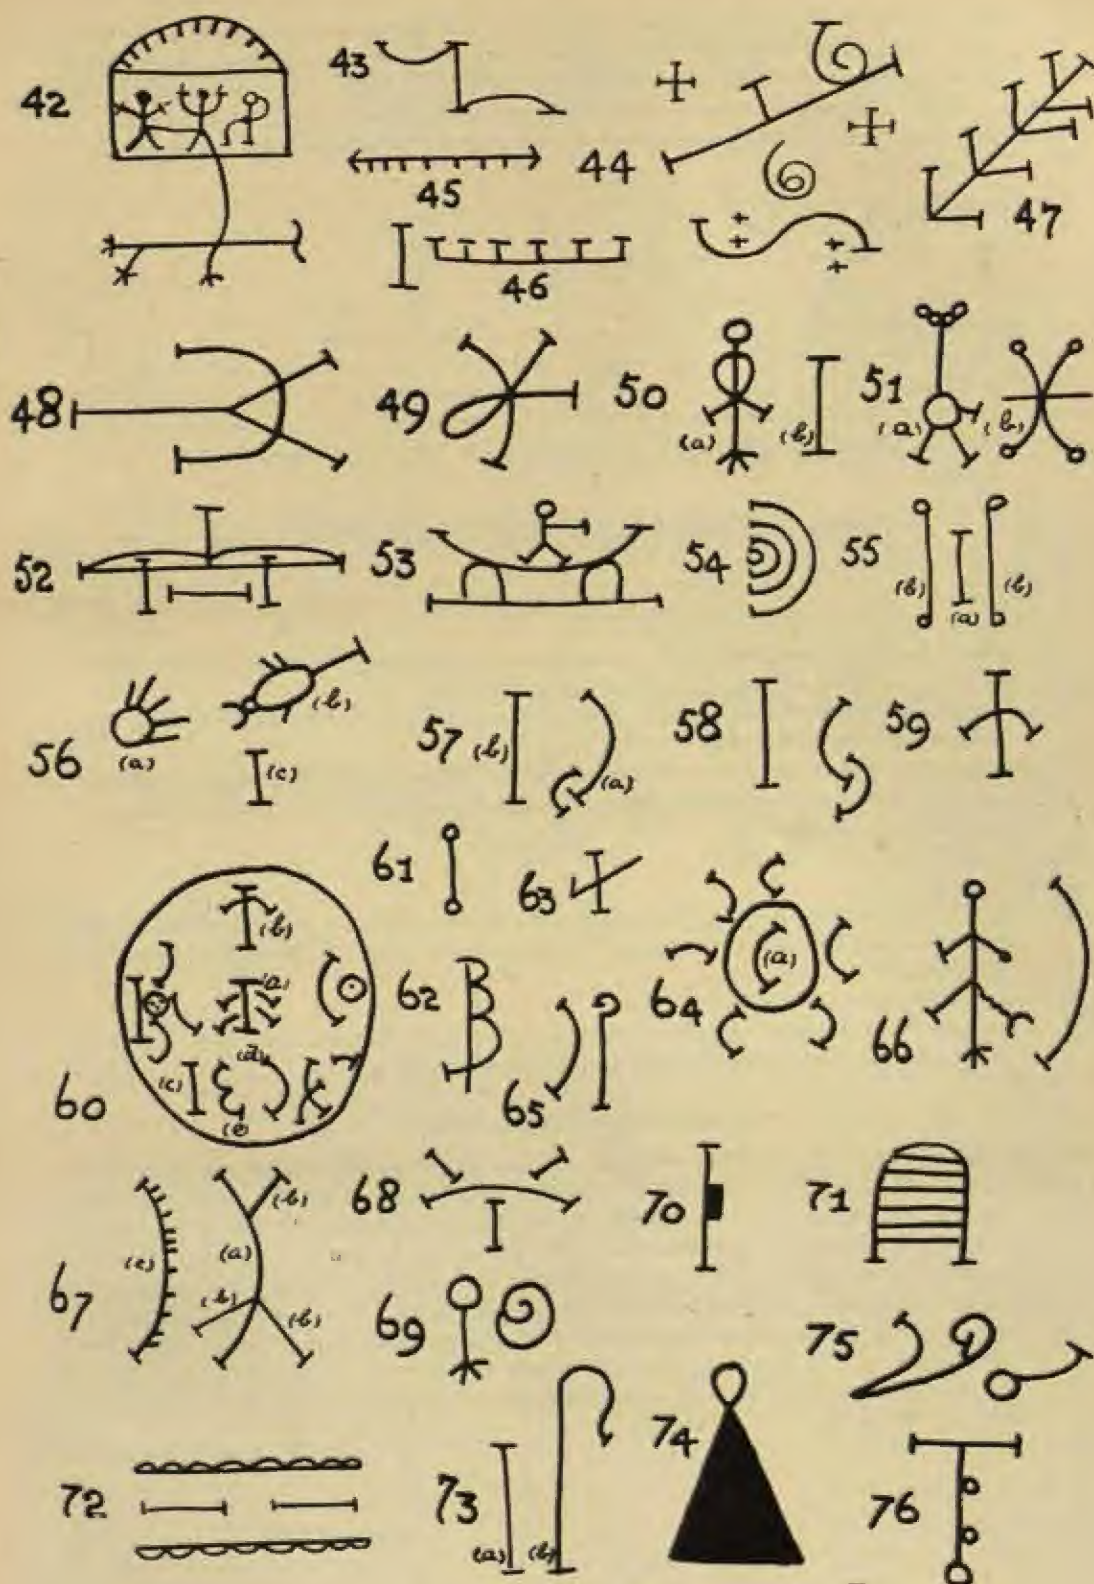 42 43 44 47
45
46
48 49 50 (a) (b) 51 (a) (b)
52 53 54 55 (b) (a) (b)
56 (a) (b) (c) 57 (b) (a) 58 59
60 (b) (a) (d) (c) (e) 61 63
62 65 64 (a) 66
67 (c) (a) (b) (b) (b) 68 70 71
69 75
72 73 (a) (b) 74 76